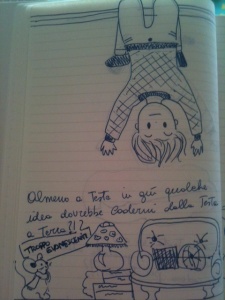 Almeno a Testa in giù qualche
idea dovrebbe Cadermi dalla Testa
a Terra!!?
TROPPO